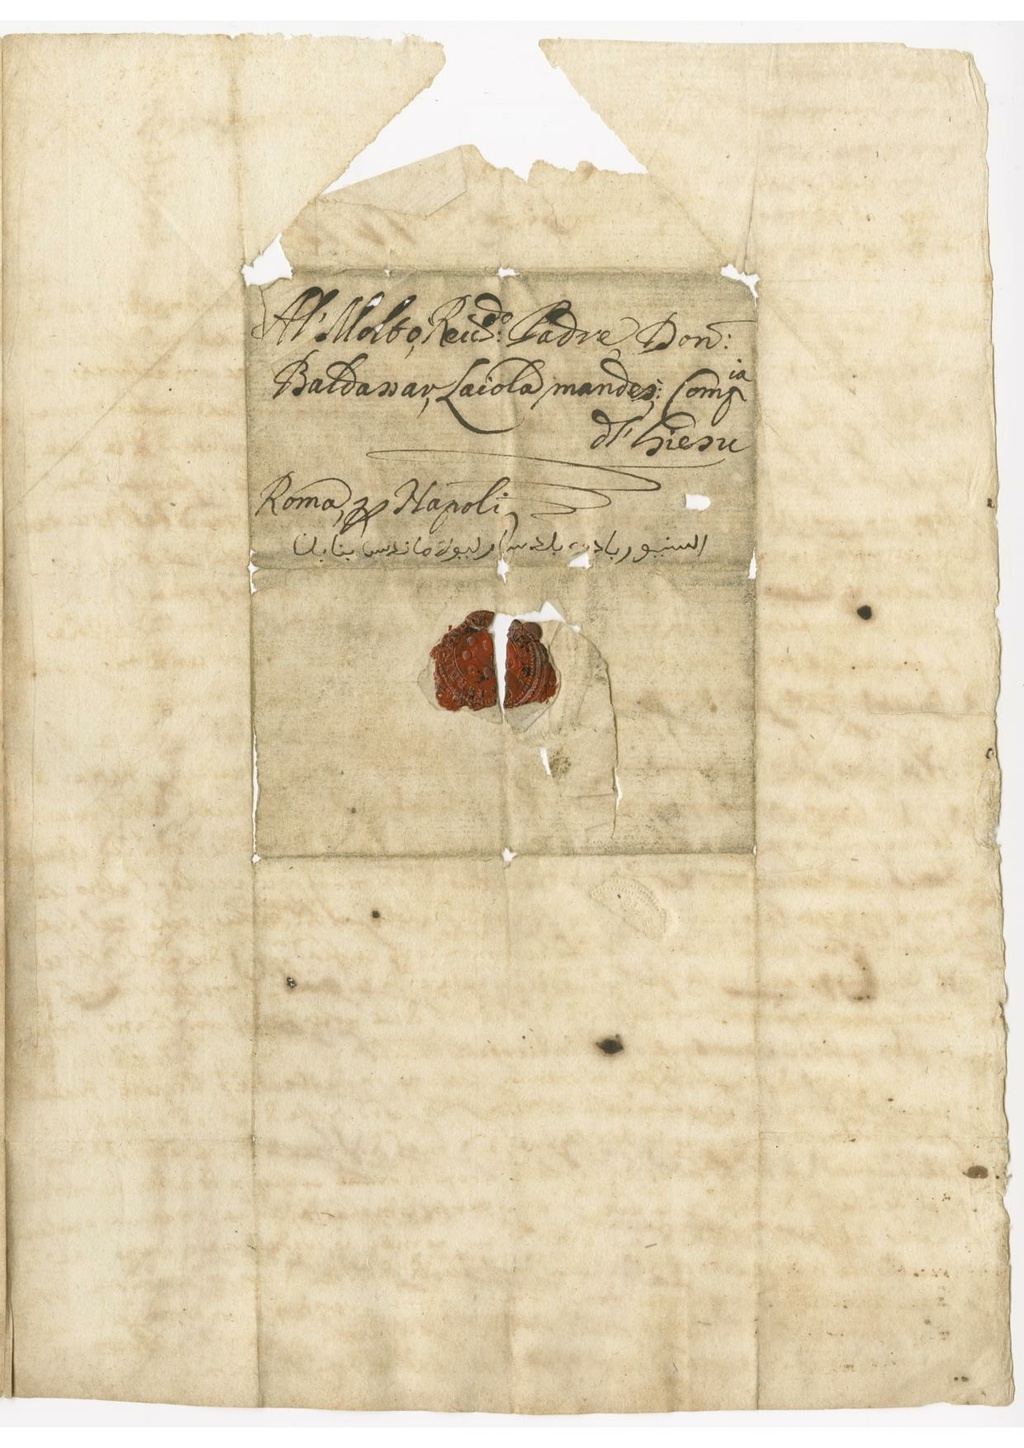 Al Molto, Reu.do: Padre, Don:
Baldassar, Laiola mandes: Comp.ia
di Giesu
Roma, p Napoli
السنيور بادري بلدسار ليولا ماندس بنابلنا